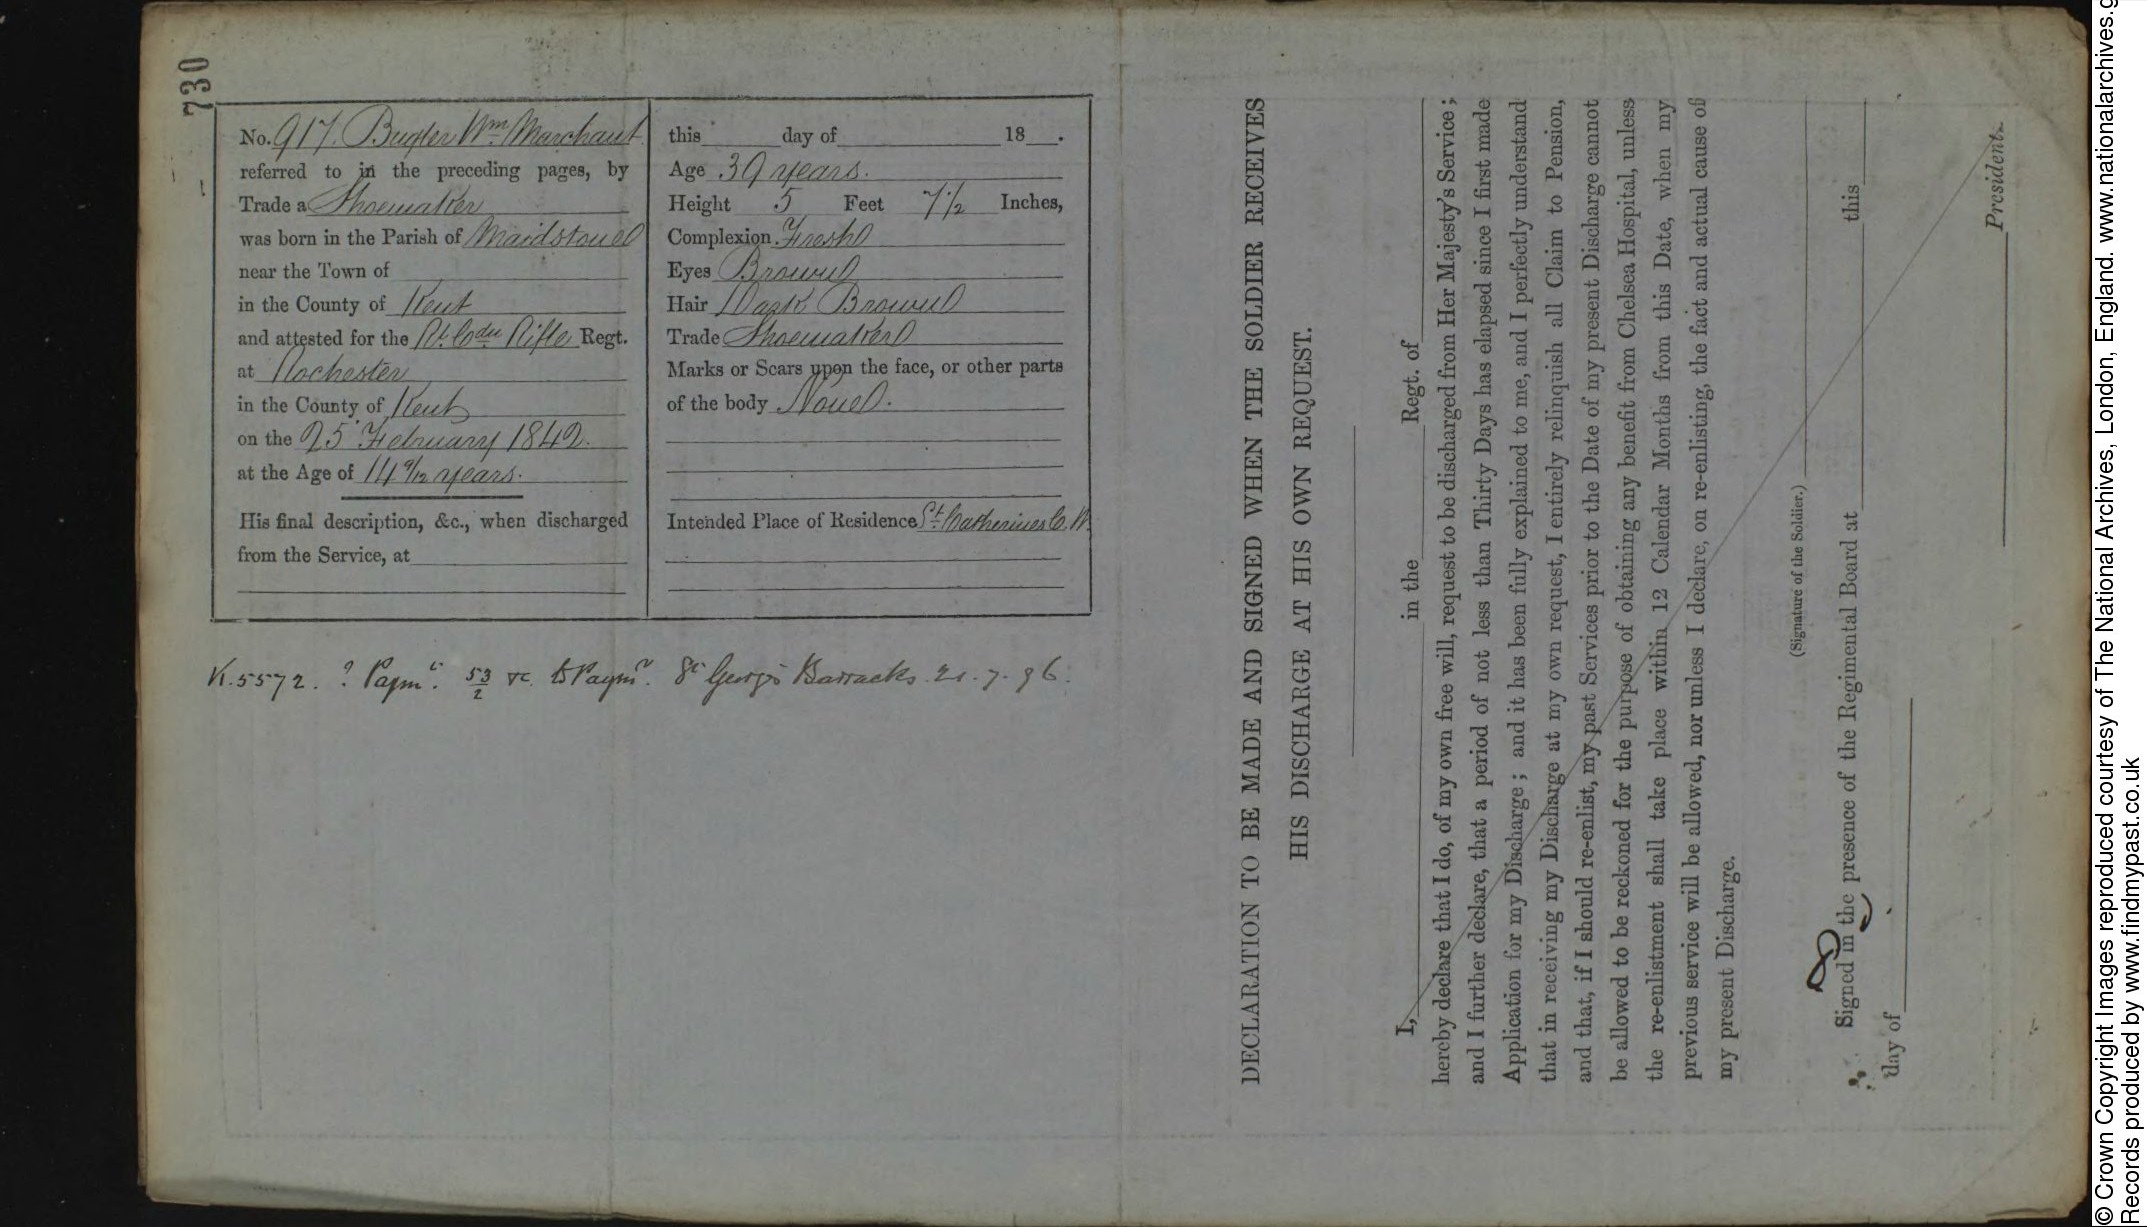 730
No. 917. Bugler Wm Marchant
referred to in the preceding pages, by
Trade a Shoemaker
was born in the Parish of Maidstone
near the Town of
in the County of Kent
and attested for the Rl. Cadn Rifle Regt.
at Rochester
in the County of Kent
on the 25 February 1842.
at the Age of 14 9/12 years.
His final description, &c., when discharged
from the Service, at
this day of 18 .
Age 39 years.
Height 5 Feet 7 1/2 Inches,
Complexion Fresh
Eyes Brown
Hair Dark Brown
Trade Shoemaker
Marks or Scars upon the face, or other parts
of the body None.
Intended Place of Residence St Catherines C. W.
K.5572. ? Paym r. 53/2 Paymr. St Georges Barracks 21.7.96.
DECLARATION TO BE MADE AND SIGNED WHEN THE SOLDIER RECEIVES
HIS DISCHARGE AT HIS OWN REQUEST.
I, in the Regt. of
hereby declare that I do, of my own free will, request to be discharged from Her Majesty's Service;
and I further declare, that a period of not less than Thirty Days has elapsed since I first made
Application for my Discharge; and it has been fully explained to me, and I perfectly understand
that in receiving my Discharge at my own request, I entirely relinquish all Claim to Pension,
and that, if I should re-enlist, my past Services prior to the Date of my present Discharge cannot
be allowed to be reckoned for the purpose of obtaining any benefit from Chelsea Hospital, unless
the re-enlistment shall take place within 12 Calendar Months from this Date, when my
previous service will be allowed, nor unless I declare, on re-enlisting, the fact and actual cause of
my present Discharge.
(Signature of the Soldier.)
Signed in the presence of the Regimental Board at this
day of
President.
© Crown Copyright Images reproduced courtesy of The National Archives, London, England. www.nationalarchives.g
Records produced by www.findmypast.co.uk